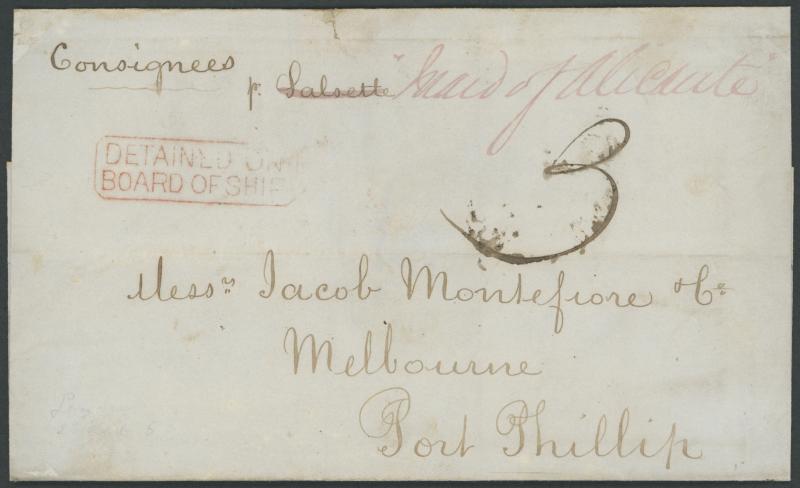 Consignees
p. Salsette "Maid of Alicante"
DETAINED ON
BOARD OF SHIP
3
Messrs Jacob Montefiore & Co
Melbourne
Port Phillip